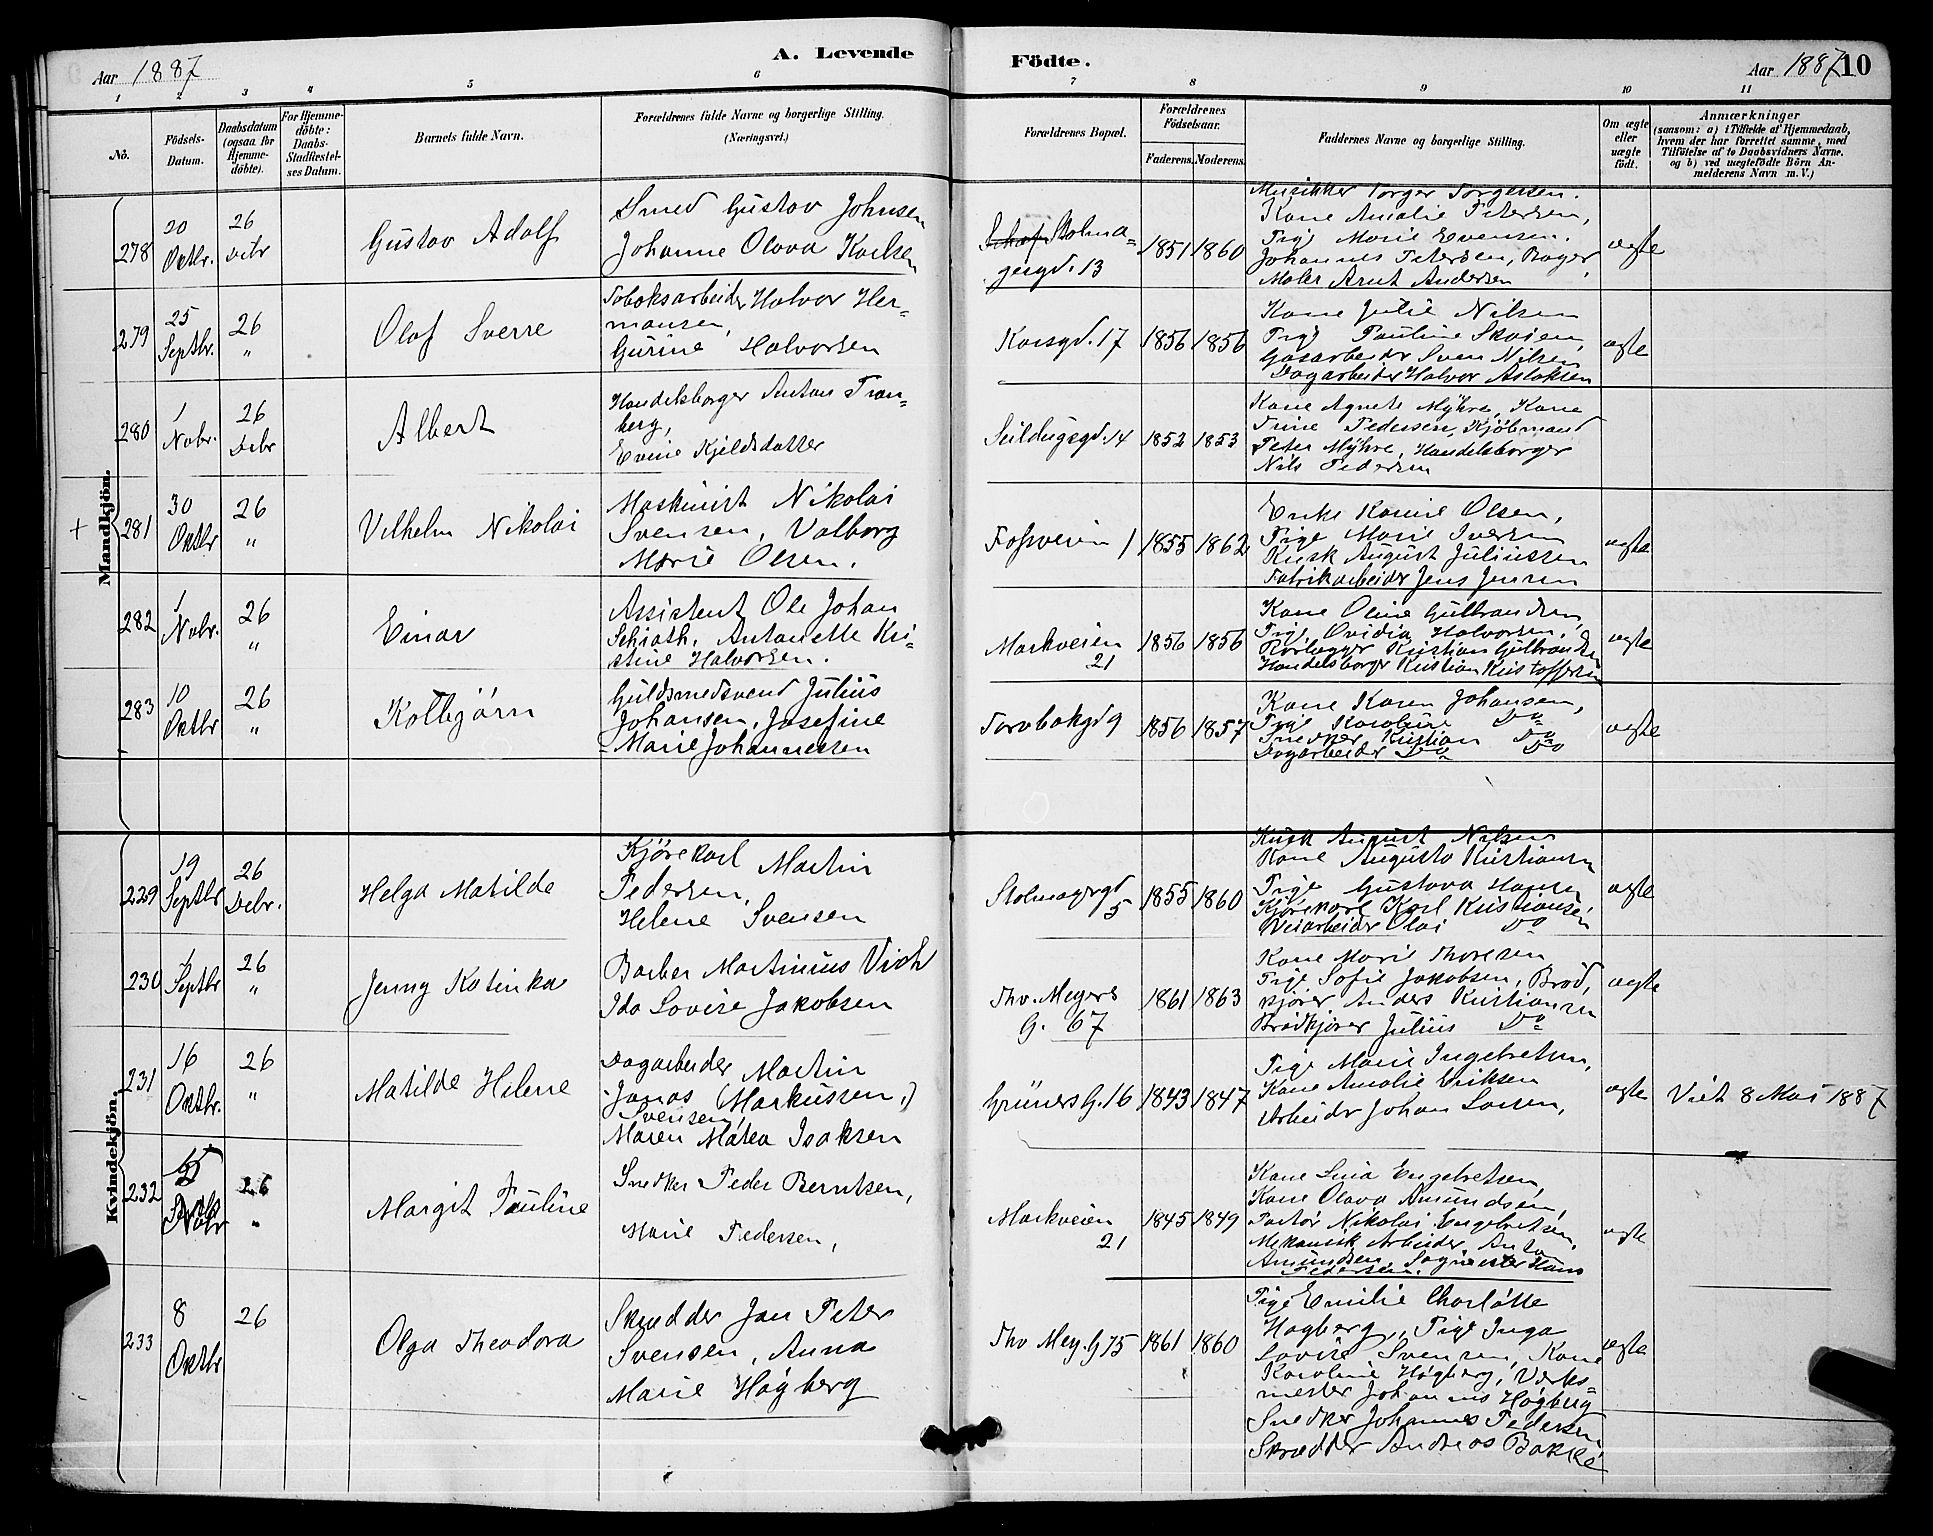 Aar 1887
A. Levende
Födte.
Aar 1887
10
1 2 3 4 5 6 7 8 9 10 11
No.
Födsels-
Datum.
Daabsdatum
(ogsaa for
Hjemme-
döbte).
For Hjemme-
döbte:
Daabs-
Stadfæstel-
ses Datum.
Barnets fulde Navn.
Forældrenes fulde Navne og borgerlige Stilling.
(Næringsvei.)
Forældrenes Bopæl.
Forældrenes
Födselsaar.
Faderens.
Moderens.
Faddernes Navne og borgerlige Stilling.
Om ægte
eller
uægte
födt.
Anmærkninger
(saasom: a) i Tilfælde af Hjemmedaab,
hvem der har forrettet samme, med
Tilföielse af to Daabsvidners Navne,
og b) ved uegtefödte Börn An-
melderens Navn m. V.)
Mandkjön.
278
20
Oktbr.
26
Debr
Gustav Adolf
Smed Gustav Johnsen
Johanne Olava Karlsen
Stolma-
gergd. 13
1851 1860
Musikker Torger Torgersen.
Kone Amalie Petersen,
Pige Marie Evensen.
Johannes Petersen, Bager,
Maler Arnt Andersen
ægte
279
25
Septbr.
26
"
Olaf Sverre
Tobaksarbeider Halvor Her-
mansen,
Gurine Halvorsen
Korsgd. 17
1856 1856
Kone Julie Nilsen
Pige Pauline Skoien,
Gasarbeider Sven Nilsen
Dagarbeider Halvor Aslaksen
ægte
280
1
Nobr.
26
Debr
Albert
Handelsborger Anton Tran-
berg,
Evine Kjeldsdatter
Seildugsgd. 14
1852 1853
Kone Agnete Myhre, Kone
Trine Pedersen, Kjöbmand
Peter Myhre, Handelsborger
Nils Pedersen
+
281
30
Oktbr
26
"
Vilhelm Nikolai
Maskinist Nikolai
Svensen, Valborg
Marie Olsen.
Fossveien 1
1855 1862
Enke Karine Olsen,
Pige Marie Iversen
Kusk August Juliussen
Fabrikarbeider Jens Jensen
ægte
282
1
Nobr.
26
"
Einar
Assistent Ole Johan
Schiøth, Antonette Kri-
stine Halvorsen.
Markveien
21
1856 1856
Kone Oline Gulbrandsen,
Pige Ovidia Halvorsen,
Rörlægger Kristian Gulbrandsen
Handelsborger Kristian Kristoffersen
ægte
283
10
Oktbr
26
"
Kolbjörn
Guldsmedsvend Julius
Johansen, Josefine
Marie Johannessen
Torvbakgd 9
1856 1857
Kone Karen Johansen,
Pige Karoline Do
Snedker Kristian Do
Dagarbeider Do Do
ægte
Kvindekjön.
229
19
Septbr
26
Debr.
Helga Matilde
Kjörekarl Martin
Pedersen,
Helene Svensen
Stolmagergd
5
1855 1860
Kusk August Nilsen
Kone Augusta Kristiansen
Pige Gustava Hansen
Kjörekarl Karl Kristiansen
Veiarbeider Olai Do
ægte
230
1
Septbr
26
"
Jenny Katinka
Barber Martinius Vich
Ida Lovise Jakobsen
Thv. Meyers
G. 67
1861 1863
Kone Marie Thoresen
Pige Sofie Jakobsen, Bröd-
kjörer Anders Kristiansen
Brödkjörer Julius Do
ægte
231
16
Oktbr.
26
"
Matilde Helene
Dagarbeider Martin
Jonas (Markussen,)
Svensen,
Maren Matea Isaksen
Grüners G. 16
1843 1847
Pige Marie Ingebretsen,
Kone Amalie Eriksen
Arbeider Johan Larsen,
ægte
Viet 8 Mai 1887
232
Nobr
26
"
Margit Pauline
Snedker Peder Berntsen,
Marie Pedersen,
Markveien
21
1845 1849
Kone Lina Engebretsen,
Kone Olava Amundsen,
Faktor Nikolai Engebretsen,
Mekanisk Arbeider Anton
Amundsen, Sagmester Hans
Pedersen.
ægte
233
8
Oktbr
26
Olga Theodora
Skrædder Jan Peter
Svensen, Anna
Marie Högberg
Thv Mey. G 75
1861 1860
Pige Emilie Charlotte
Högberg, Pige Inga
Lovise Svensen, Kone
Karoline Högberg, Verks-
mester Johannes Högberg
Snedker Johannes Pedersen
Skrædder Andreas Bakke
ægte